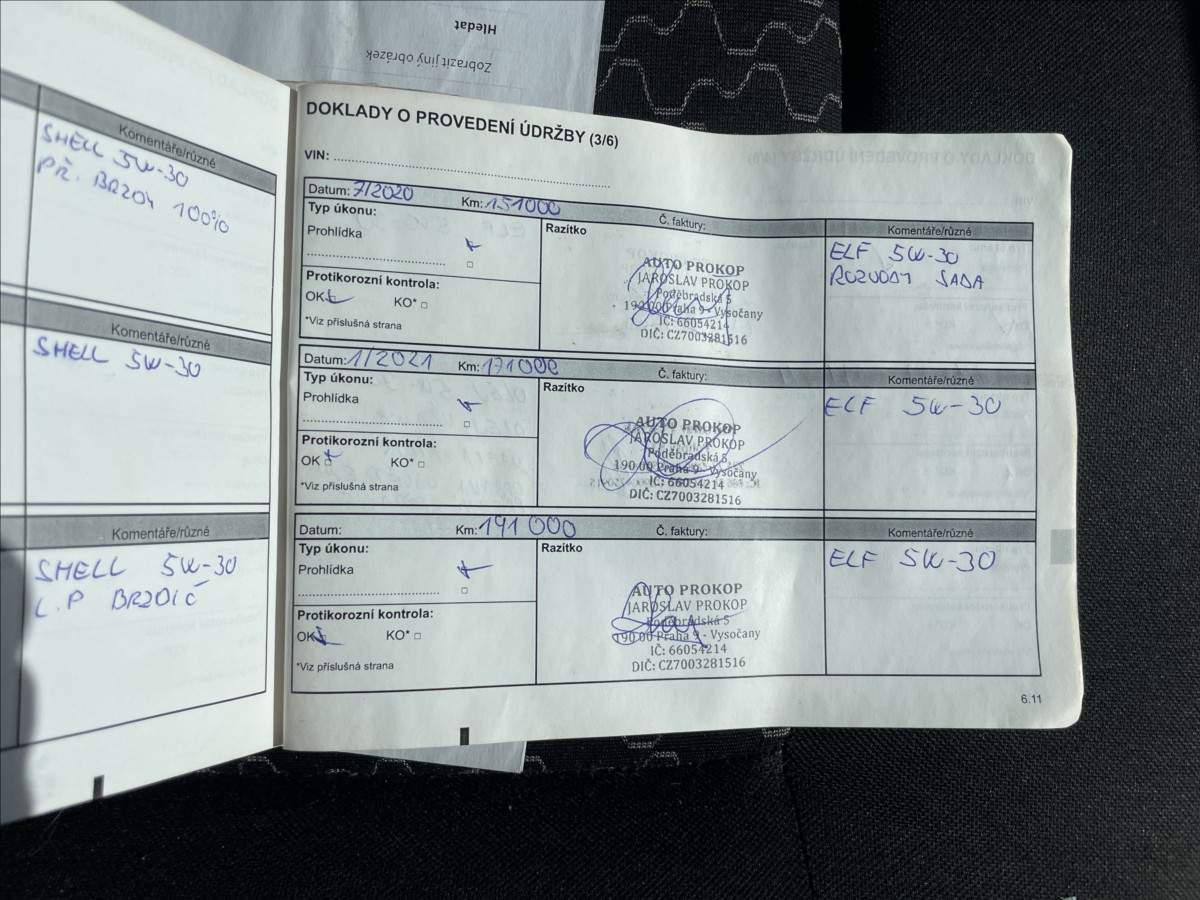 Hledat
Zobrazit jiný obrázek
Komentáře/různé
SHELL 5W-30
PŘ. BRZDY 100%
Komentáře/různé
SHELL 5W-30
Komentáře/různé
SHELL 5W-30
L.P BRZDIČ
DOKLADY O PROVEDENÍ ÚDRŽBY (3/6)
VIN:
Datum: 7/2020 Km: 151000 Č. faktury:
Typ úkonu:
Prohlídka
Protikorozní kontrola:
OK KO*
*Viz příslušná strana
Razítko
AUTO PROKOP
JAROSLAV PROKOP
Poděbradská 5
190 00 Praha 9 - Vysočany
IČ: 66054214
DIČ: CZ7003281516
Komentáře/různé
ELF 5W-30
ROZVODY SADA
Datum: 1/2021 Km: 171000 Č. faktury:
Typ úkonu:
Prohlídka
Protikorozní kontrola:
OK KO*
*Viz příslušná strana
Razítko
AUTO PROKOP
JAROSLAV PROKOP
Poděbradská 5
190 00 Praha 9 - Vysočany
IČ: 66054214
DIČ: CZ7003281516
Komentáře/různé
ELF 5W-30
Datum: Km: 191 000 Č. faktury:
Typ úkonu:
Prohlídka
Protikorozní kontrola:
OK KO*
*Viz příslušná strana
Razítko
AUTO PROKOP
JAROSLAV PROKOP
Poděbradská 5
190 00 Praha 9 - Vysočany
IČ: 66054214
DIČ: CZ7003281516
Komentáře/různé
ELF 5W-30
6.11